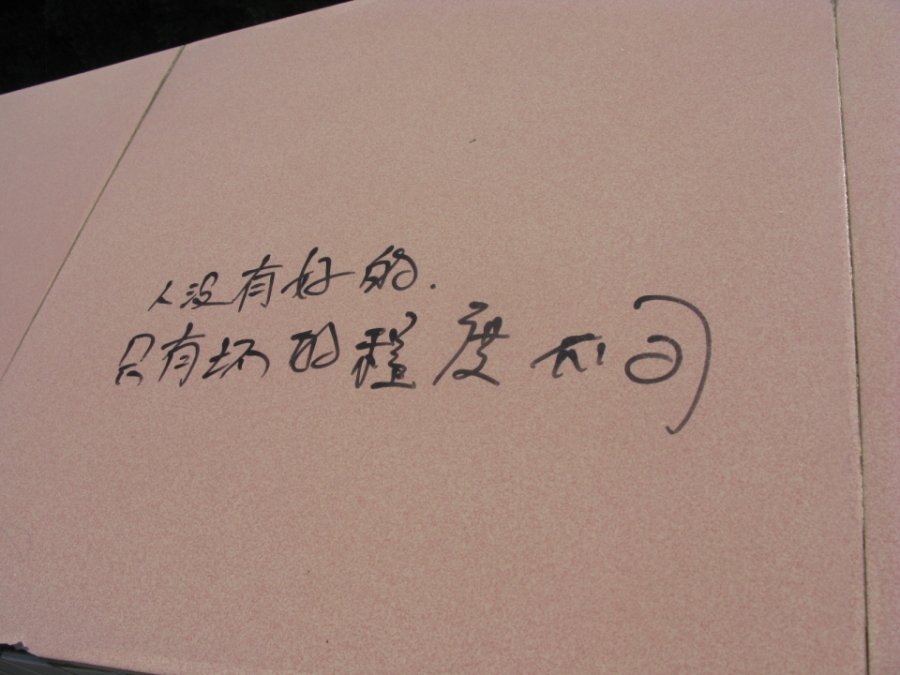 人没有好的.
只有坏的程度不同